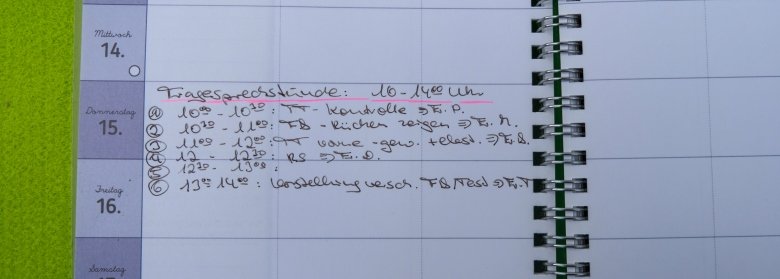 Mittwoch
14.
Fragesprechstunde: 10 - 14⁰⁰ Uhr
Donnerstag
15.
① 10⁰⁰ - 10³⁰: TT - Kontrolle ⇒ Fr. P.
② 10³⁰ - 11⁰⁰: FB - Rücken zeigen ⇒ Fr.
③ 11⁰⁰ - 12⁰⁰: TT ⇒ Fr. B.
④ 12 - 12³⁰: RS ⇒ Fr. D.
⑤ 12³⁰ - 13⁰⁰:
Freitag
16.
⑥ 13⁰⁰ 14⁰⁰: Vorstellung versch. FB/Test ⇒ Fr. T
Samstag